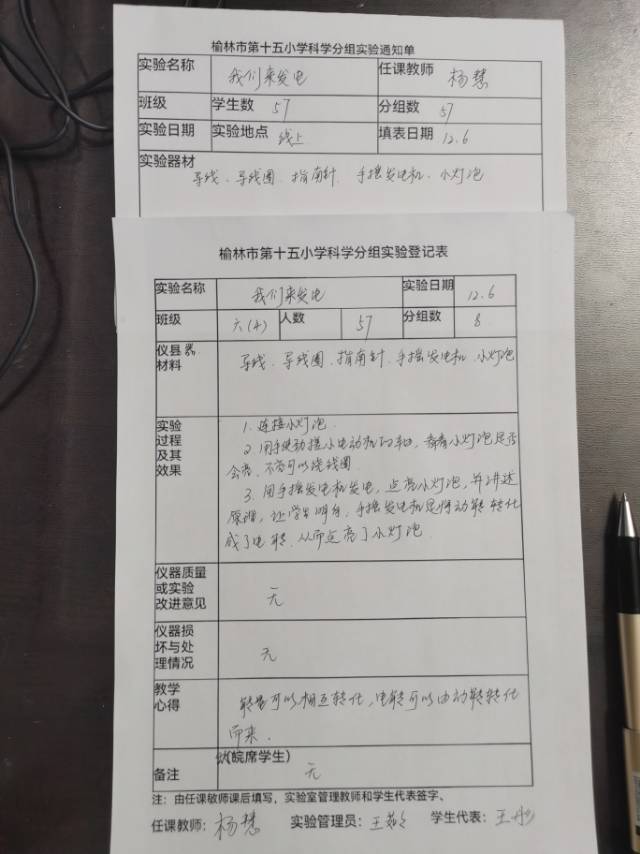 榆林市第十五小学科学分组实验通知单
实验名称 我们来发电 任课教师 杨慧
班级 学生数 57 分组数 57
实验日期 实验地点 线上 填表日期 12.6
实验器材
导线、导线圈、指南针、手摇发电机、小灯泡
榆林市第十五小学科学分组实验登记表
实验名称 我们来发电 实验日期 12.6
班级 六(4) 人数 57 分组数 8
仪县器
材料 导线、导线圈、指南针、手摇发电机、小灯泡
实验
过程
及其
效果
1. 连接小灯泡.
2. 用手使劲搓小电动机的轴,看看小灯泡是否
会亮,不亮可以绕线圈.
3. 用手摇发电机发电,点亮小灯泡,并讲述
原理,让学生明白,手摇发电机是将动能转化
成了电能,从而点亮了小灯泡.
仪器质量
或实验
改进意见 无
仪器损
坏与处
理情况 无
教学
心得
能量可以相互转化,电能可以由动能转化
而来.
(皖席学生)
备注 无
注:由任课敏师课后填写,实验室管理教师和学生代表签字、
任课教师: 杨慧 实验管理员: 学生代表: